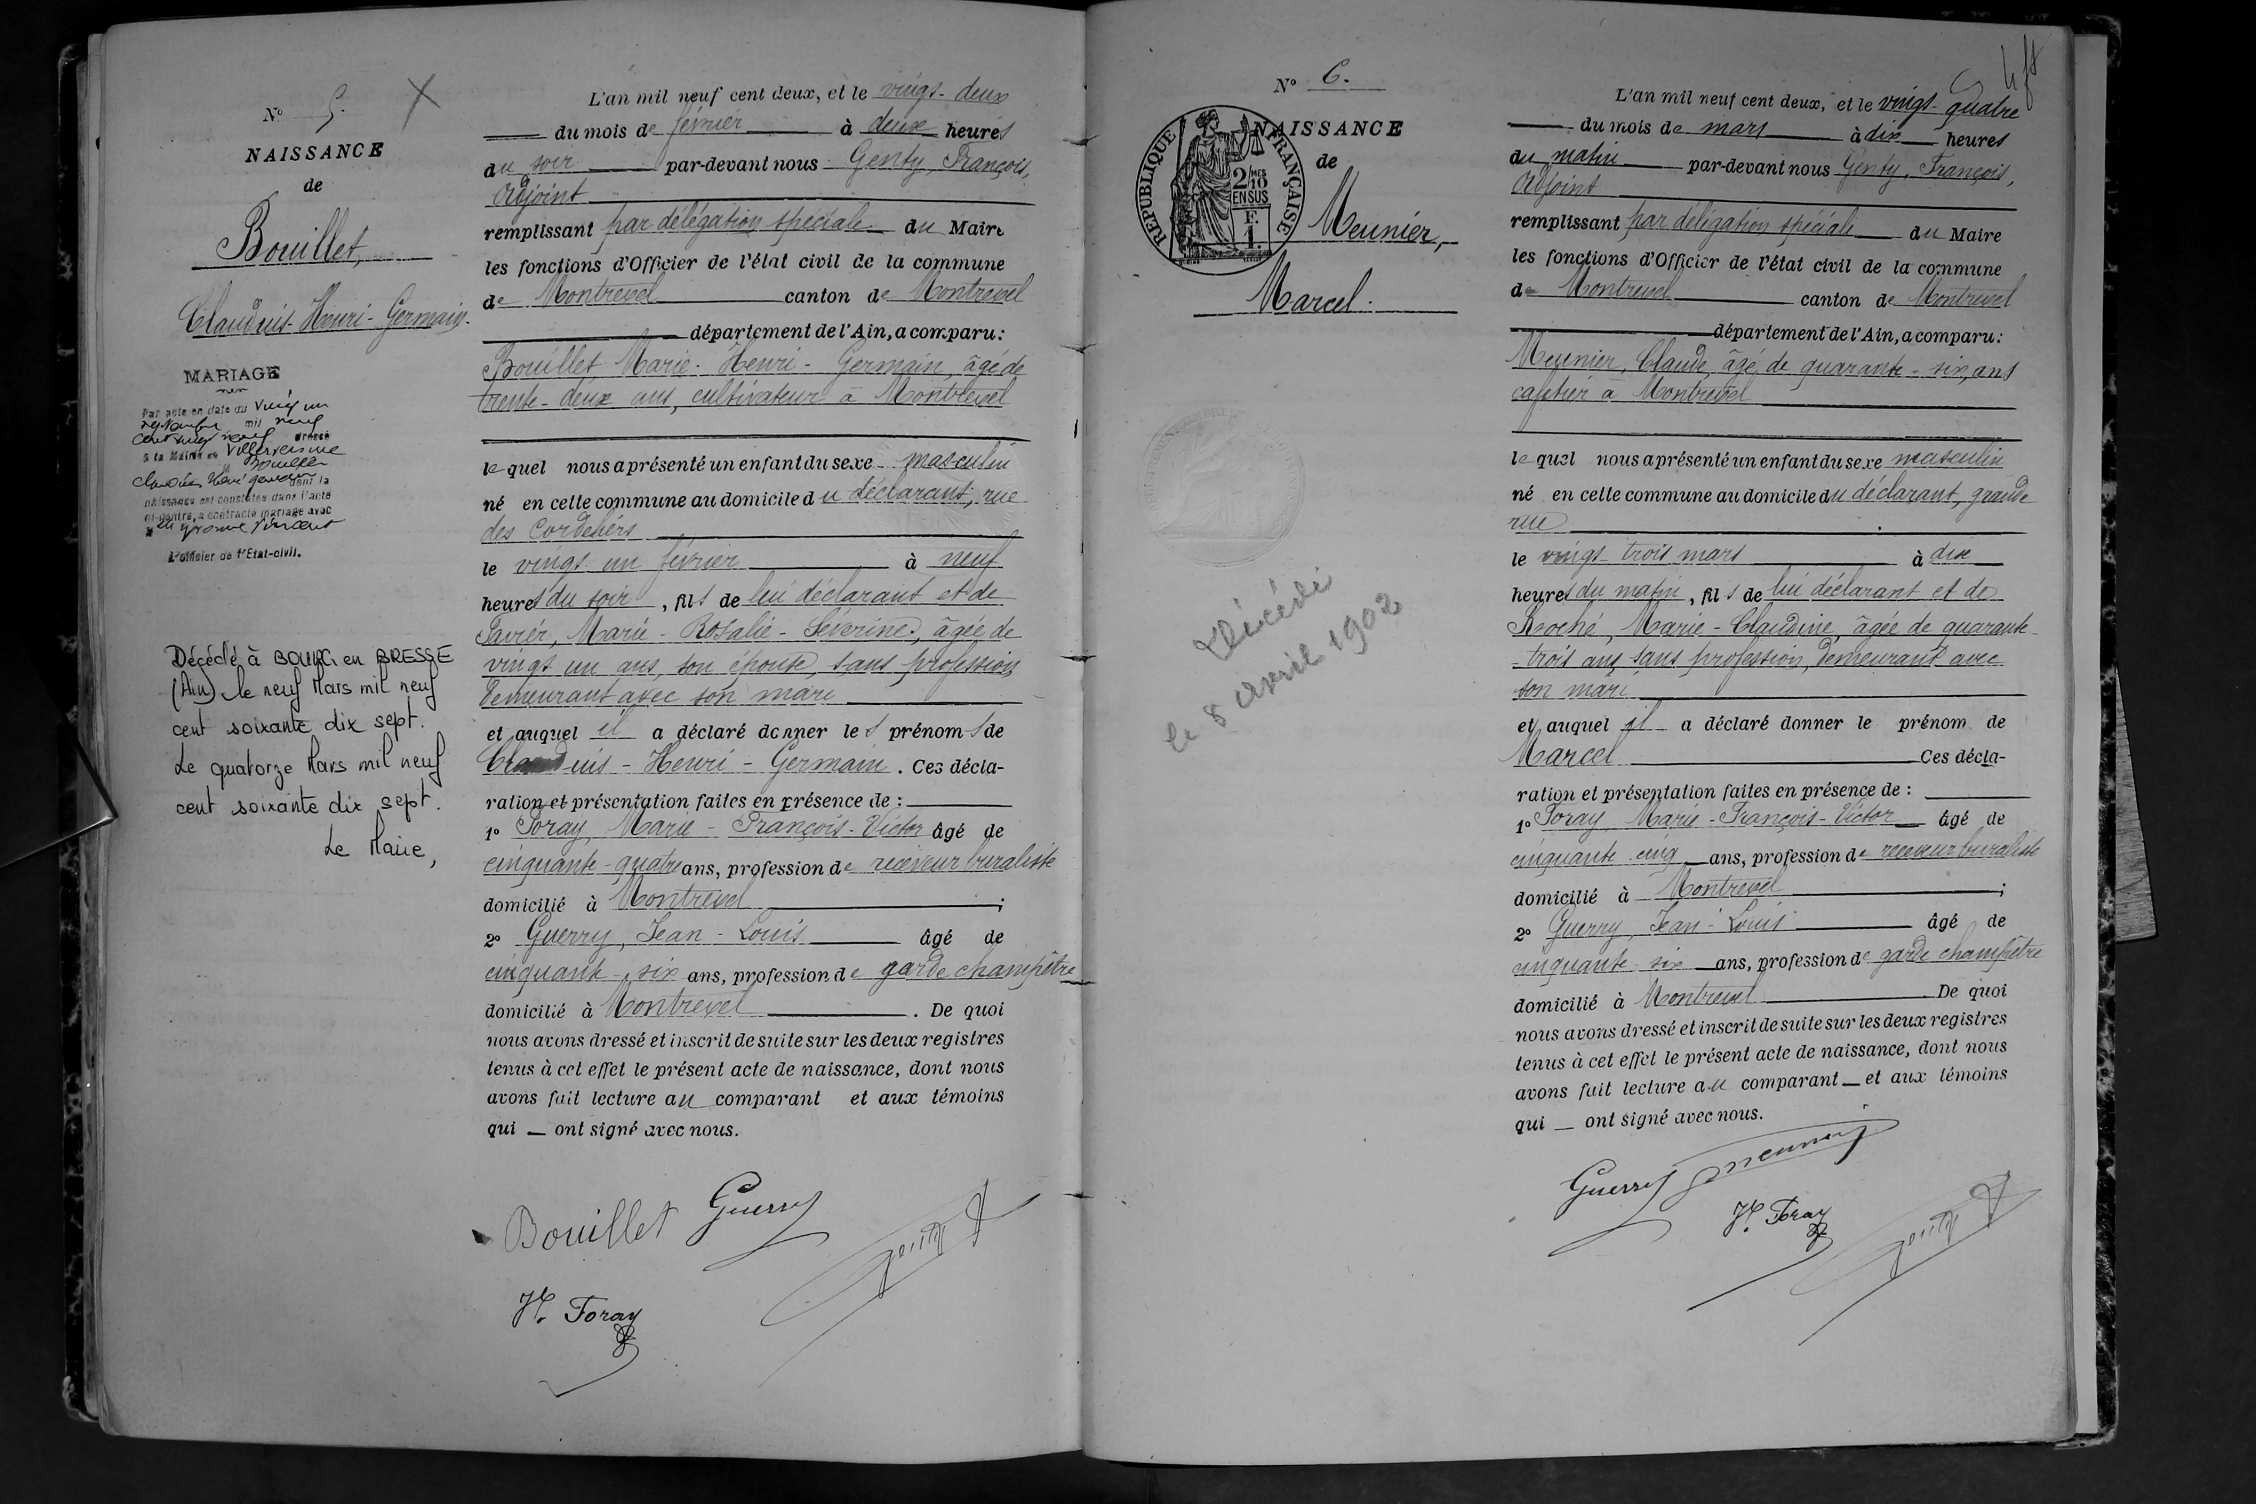 N° 5.
NAISSANCE
de
Bouillet,
Claudius-Henri-Germain.
MARIAGE
Par acte en date du vingt un
mil neuf
cent vingt neuf dressé
à la Mairie de Villereversure
Bouillet
Claudius Henri Germain dont la
naissance est constatée dans l'acte
ci-contre, a contracté mariage avec
Yvonne Vincent
L'officier de l'Etat-civil.
Décédé à BOURG en BRESSE
(Ain) le neuf Mars mil neuf
cent soixante dix sept.
Le quatorze Mars mil neuf
cent soixante dix sept.
Le Maire,
L'an mil neuf cent deux, et le vingt-deux
du mois de février à deux heures
du soir par-devant nous Genty, François,
Adjoint
remplissant par délégation spéciale du Maire
les fonctions d'Officier de l'état civil de la commune
de Montrevel canton de Montrevel
département de l'Ain, a comparu:
Bouillet Marie-Henri-Germain, âgé de
trente-deux ans, cultivateur à Montrevel
lequel nous a présenté un enfant du sexe masculin
né en cette commune au domicile du déclarant, rue
des Cordeliers
le vingt un février à neuf
heures du soir, fils de lui déclarant et de
Pavier, Marie-Rosalie-Séverine, âgée de
vingt un ans, son épouse, sans profession
demeurant avec son mari
et auquel il a déclaré donner les prénoms de
Claudius-Henri-Germain. Ces décla-
ration et présentation faites en présence de :
1° Foray, Marie-François-Victor âgé de
cinquante-quatre ans, profession de receveur buraliste
domicilié à Montrevel ;
2° Guerry, Jean-Louis âgé de
cinquante-six ans, profession de garde champêtre
domicilié à Montrevel . De quoi
nous avons dressé et inscrit de suite sur les deux registres
tenus à cet effet le présent acte de naissance, dont nous
avons fait lecture au comparant et aux témoins
qui ont signé avec nous.
Bouillet Guerry
Genty
Foray
N° 6.
NAISSANCE
de
REPUBLIQUE FRANÇAISE
2/10MES
EN SUS
F.
1.
Meunier,
Marcel.
Décédé
le 8 avril 1902
L'an mil neuf cent deux, et le vingt-quatre
du mois de mars à dix heures
du matin par-devant nous Genty, François,
Adjoint
remplissant par délégation spéciale du Maire
les fonctions d'Officier de l'état civil de la commune
de Montrevel canton de Montrevel
département de l'Ain, a comparu:
Meunier, Claude, âgé de quarante-six ans
cafetier à Montrevel
lequel nous a présenté un enfant du sexe masculin
né en cette commune au domicile du déclarant, grande
rue
le vingt-trois mars à dix
heures du matin, fils de lui déclarant et de
Roché, Marie-Claudine, âgée de quarante-
-trois ans sans profession, demeurant avec
son mari
et auquel il a déclaré donner le prénom de
Marcel Ces décla-
ration et présentation faites en présence de :
1° Foray Marie-François-Victor âgé de
cinquante cinq ans, profession de receveur buraliste
domicilié à Montrevel ;
2° Guerry, Jean-Louis âgé de
cinquante-six ans, profession de garde champêtre
domicilié à Montrevel De quoi
nous avons dressé et inscrit de suite sur les deux registres
tenus à cet effet le présent acte de naissance, dont nous
avons fait lecture au comparant et aux témoins
qui ont signé avec nous.
Guerry Meunier
Foray
Genty